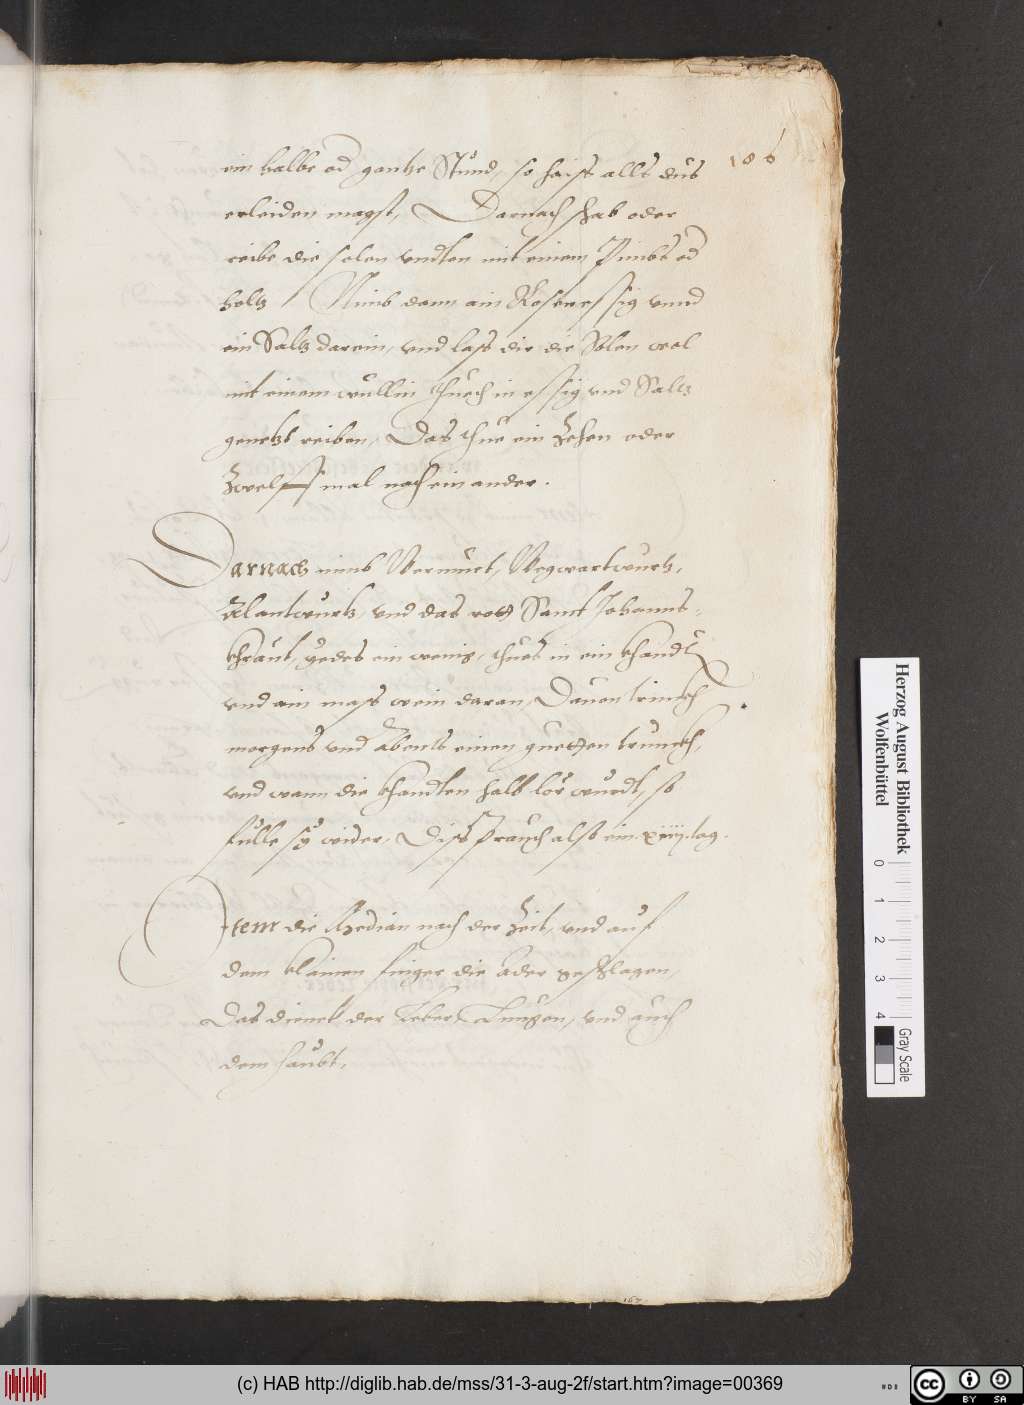 186
ein halbe od gantze Stund, so haiß alls dus
erleiden magst, Darnach schab oder
reibe die solen undten mit einem Pimbs od
holtz Nimb dann ain Rosenessig unnd
ein Saltz darein, und laß dir die Solen wol
mit einem wullin thuech in essig und Saltz
genetzt reiben, Das thue ein Zehen oder
Zwelff mal nach ein ander.
Darnach nimb Wermuet, Wegwartwurtz,
Alantwurtz, und das rott Sannt Johanns-
khraut, yedes ein wenig, thues in ein khandl
und ain mass wein daran, Davon trinckh
morgens und Abents einen guetten trunckh,
und wann die khandten halb lör wurdt, so
fülle sy wider, Diss brauch also ein xiiij tag.
Item die Median nach der Zeit, und auf
dem klainen finger die Ader geschlagen,
Das dienet der Leber, Lungen, und auch
dem haubt,
167
Herzog August Bibliothek
Wolfenbüttel
0 1 2 3 4
Gray Scale
(c) HAB http://diglib.hab.de/mss/31-3-aug-2f/start.htm?image=00369
cc BY SA